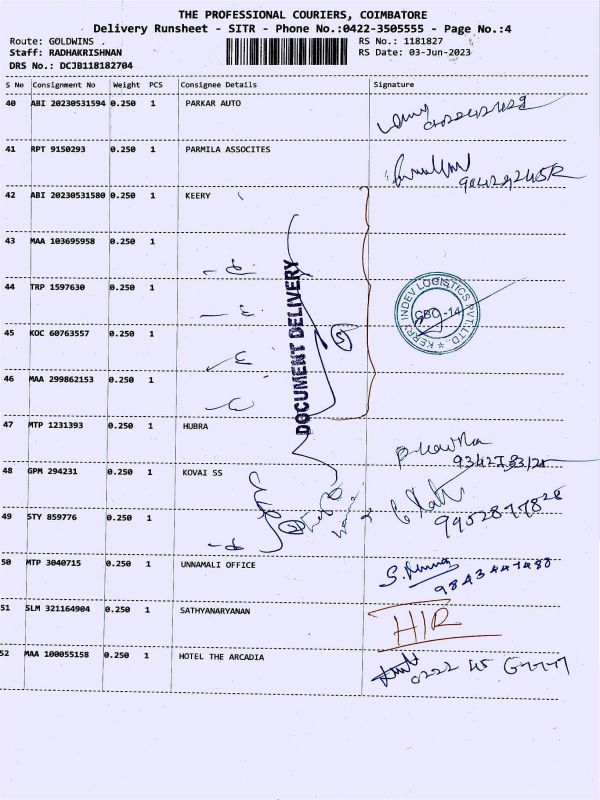 THE PROFESSIONAL COURIERS, COIMBATORE
Delivery Runsheet - SITR - Phone No.:0422-3505555 - Page No.:4
Route: GOLDWINS
RS No.: 1181827
Staff: RADHAKRISHNAN
RS Date: 03-Jun-2023
DRS No.: DCJB118182704
S No Consignment No Weight PCS Consignee Details Signature
40 ABI 20230531594 0.250 1 PARKAR AUTO
41 RPT 9150293 0.250 1 PARMILA ASSOCITES
42 ABI 20230531580 0.250 1 KEERY
43 MAA 103695958 0.250 1
44 TRP 1597630 0.250 1
45 KOC 60763557 0.250 1
46 MAA 299862153 0.250 1
DOCUMENT DELIVERY
5
KERRY INDEV LOGISTICS PVT. LTD.
CBO-14
47 MTP 1231393 0.250 1 HUBRA
48 GPM 294231 0.250 1 KOVAI SS
49 STY 859776 0.250 1
9952877828
50 MTP 3040715 0.250 1 UNNAMALI OFFICE
9843447488
51 SLM 321164904 0.250 1 SATHYANARYANAN
H/R
52 MAA 100055158 0.250 1 HOTEL THE ARCADIA